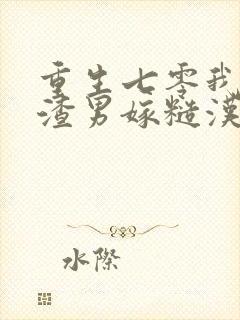 重生七零我
渣男嫁糙漢
水際